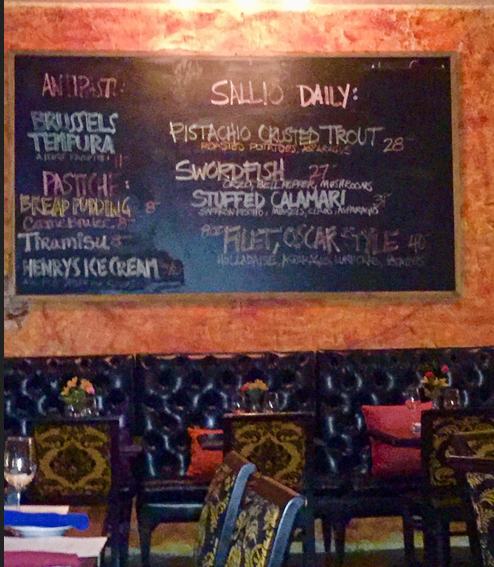 ANTIPASTI:
BRUSSELS
TEMPURA
11
PASTICHE:
BREAD PUDDING 8
Creme Brulee 8
Tiramisu 8
HENRYS ICE CREAM
SALLIO DAILY:
PISTACHIO CRUSTED TROUT 28
ROASTED POTATOES, ASPARAGUS
SWORDFISH 27
ORZO, BELL PEPPER, MUSHROOMS
STUFFED CALAMARI
SAFFRON RISOTTO, MUSSELS, CLAMS, ASPARAGUS
FILET, OSCAR STYLE 40
HOLLANDAISE, ASPARAGUS,